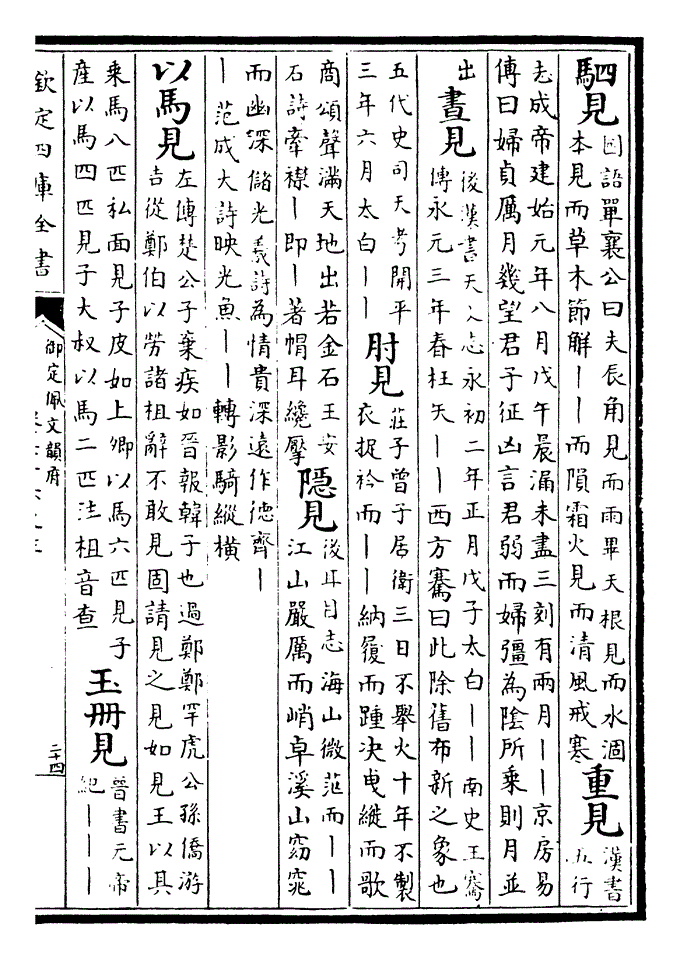 駟見 國語單襄公曰夫辰角見而雨畢天根見而水涸
本見而草木節解丨丨而隕霜火見而清風戒寒 重見 漢書
五行
志成帝建始元年八月戊午晨漏未盡三刻有兩月丨丨京房易
傳曰婦貞厲月幾望君子征凶言君弱而婦彊為陰所乘則月並
出 晝見 後漢書天文志永初二年正月戊子太白丨丨南史王騫
傳永元三年春枉矢丨丨西方騫曰此除舊布新之象也
五代史司天考開平
三年六月太白丨丨 肘見 莊子曾子居衛三日不舉火十年不製
衣捉衿而丨丨納履而踵決曳縰而歌
商頌聲滿天地出若金石王安
石詩牽襟丨即丨著帽耳纔擊 隠見 後耳目志海山微茫而丨丨
江山嚴厲而峭卓溪山窈窕
而幽深儲光羲詩為情貴深遠作徳齊丨
丨范成大詩映光魚丨丨轉影騎縱横
以馬見 左傳楚公子棄疾如晉報韓子也過鄭鄭罕虎公孫僑游
吉從鄭伯以勞諸柤辭不敢見固請見之見如見王以其
乘馬八匹私面見子皮如上卿以馬六匹見子
産以馬四匹見子大叔以馬二匹注柤音查 玉冊見 晉書元帝
紀丨丨丨
欽定四庫全書
御定佩文韻府
三十四